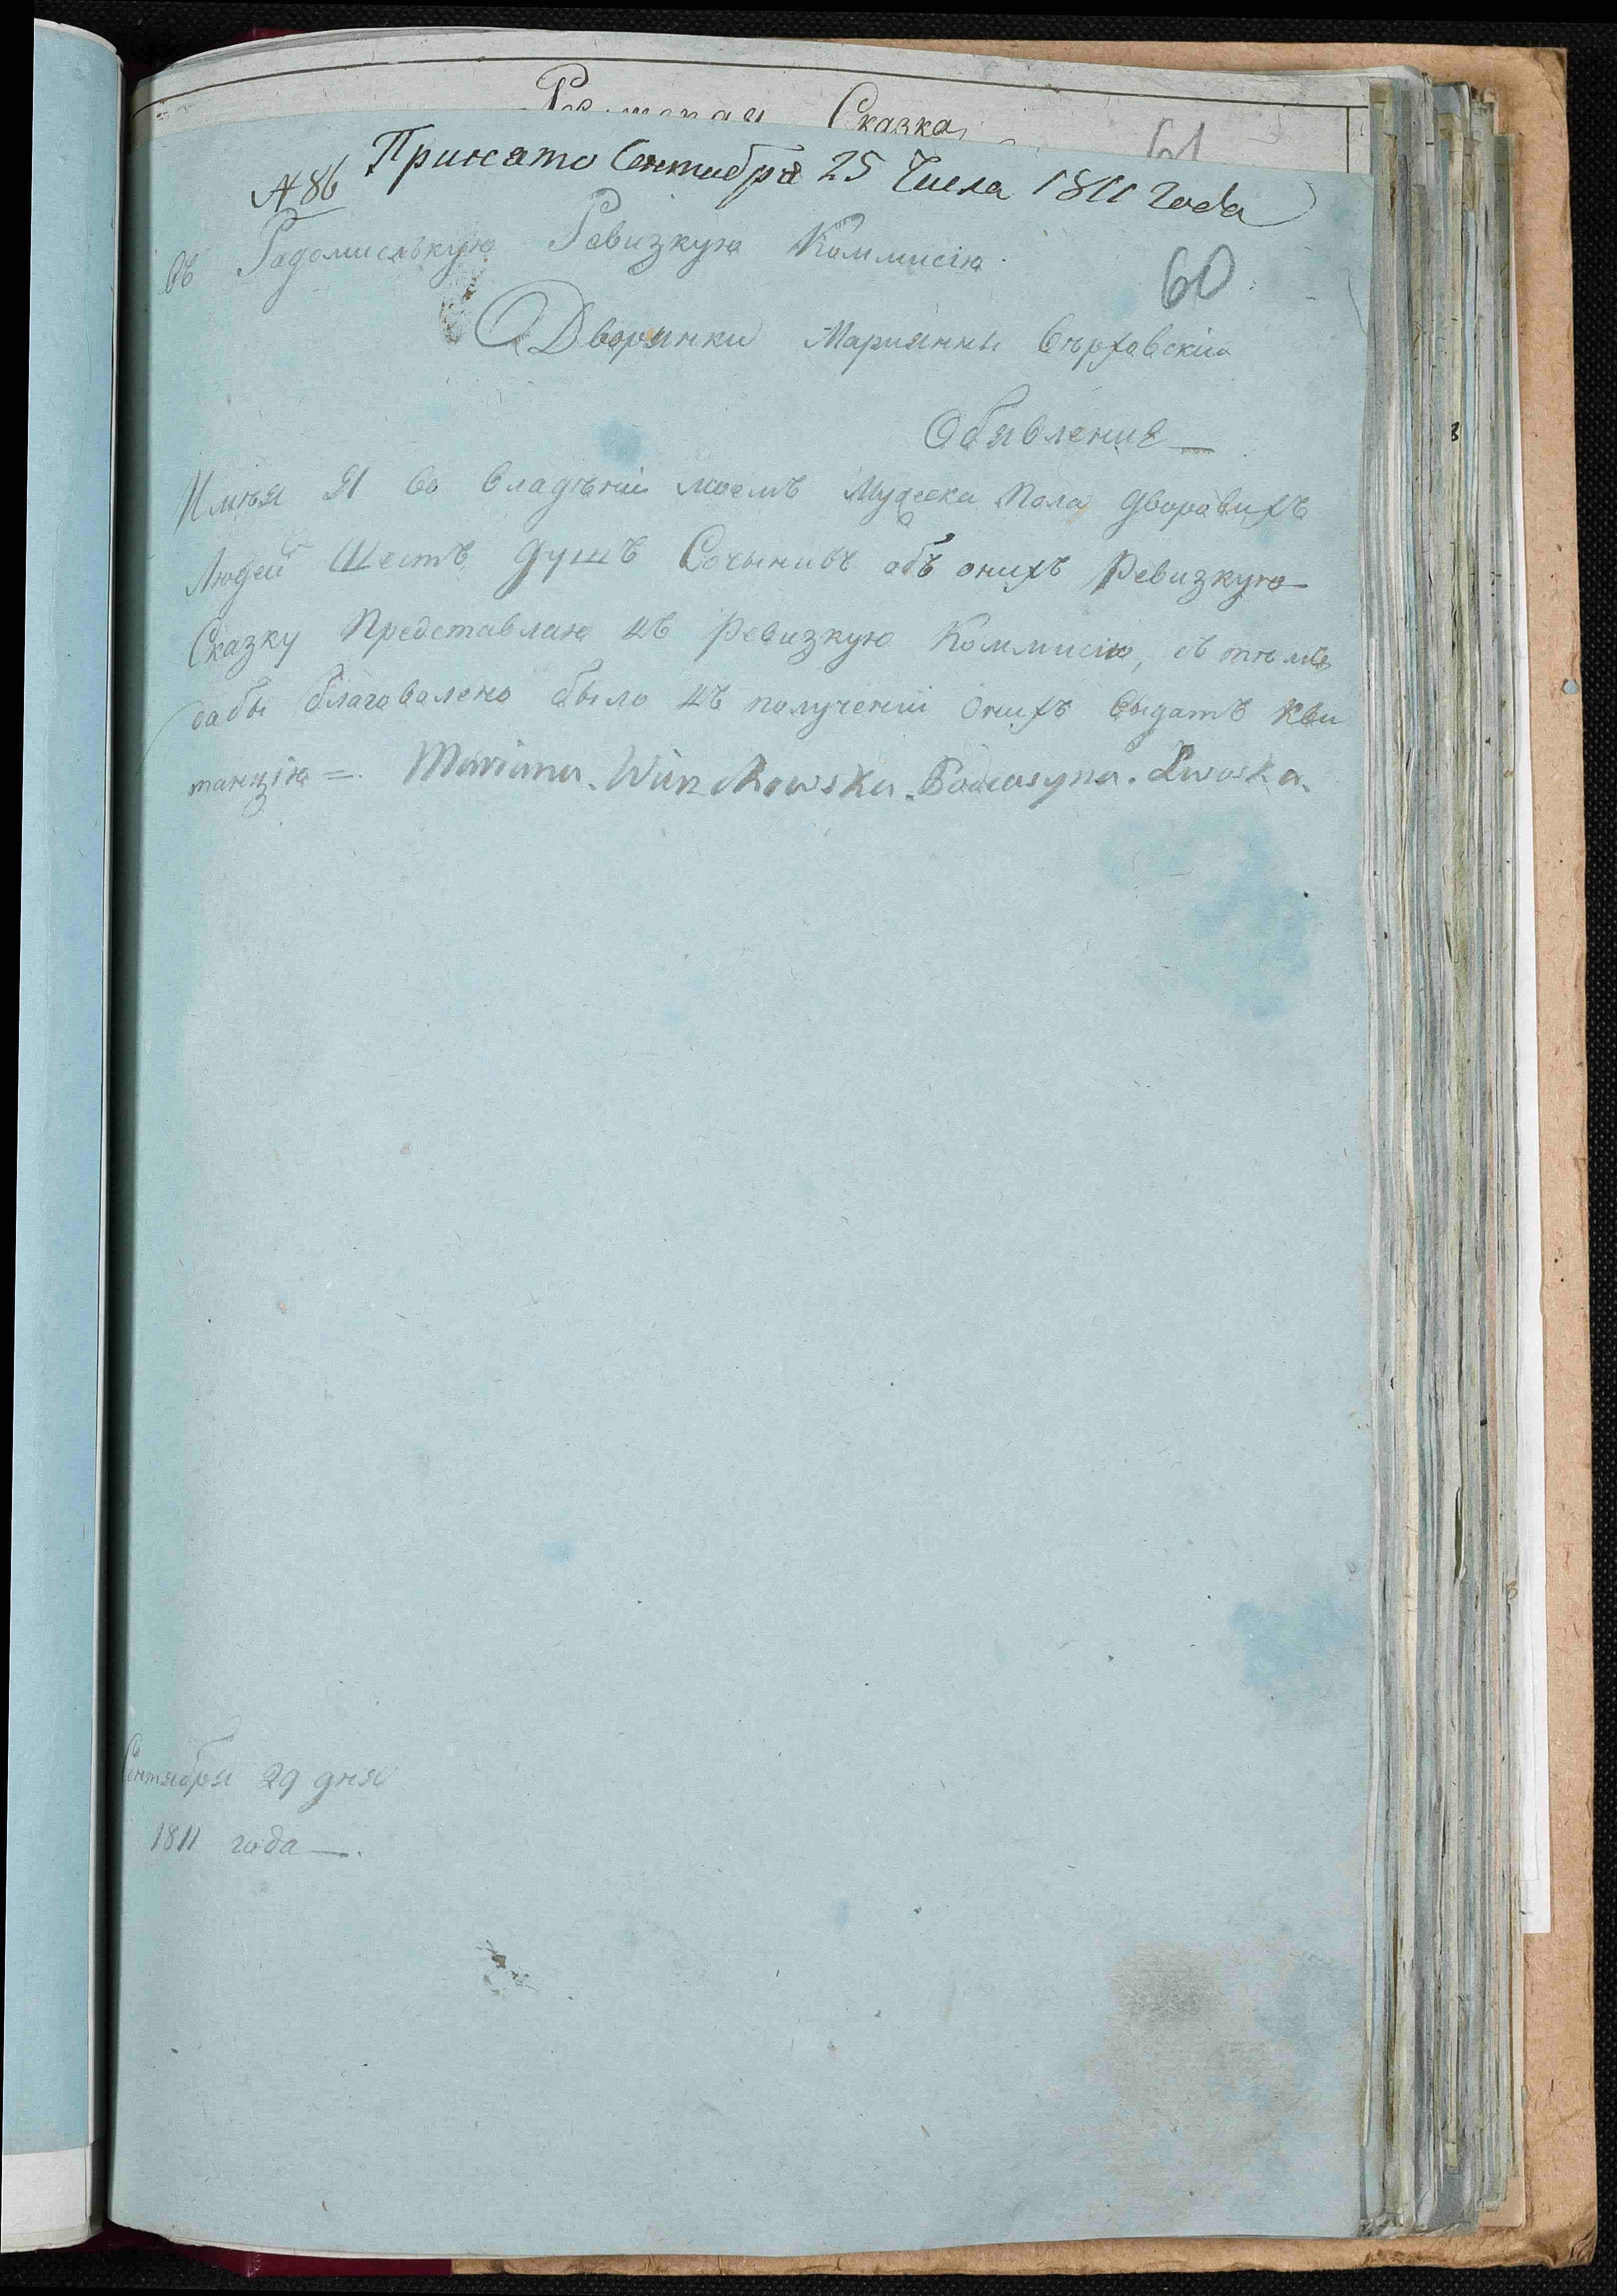 Сказка
61
№ 86 Принято Сентября 25 Числа 1811 Года
въ Радомислькую Ревизкую Коммисію
60
Дворянки Марианны
Обявление
Имѣя Я во владѣніи моемъ Мужеска Пола дворовихъ
Людей Шестъ душъ Сочынивъ объ онихъ Ревизкую
Сказку Представлаю въ Ревизкую Коммисію, съ тѣмъ
дабы благоволено было въ полученіи Онихъ выдатъ Кви
танцію =. Mariana
Сентября 29 дня
1811 года